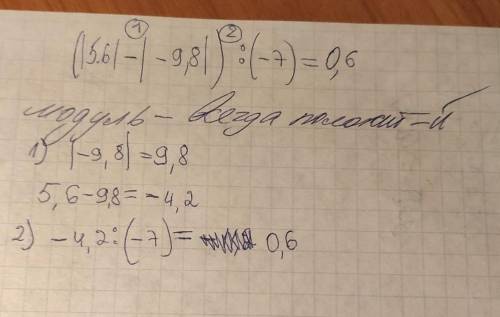 ① ②
(|5.6|-|-9,8|):(-7)=0,6
модуль - всегда положит-й
1) |-9,8|=9,8
5,6-9,8=-4,2
2) -4,2:(-7)= 0,6